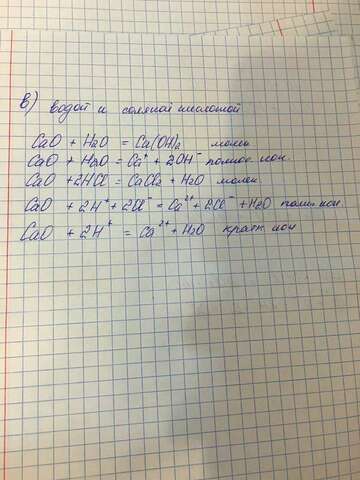 в) водой и соляной кислотой
CaO + H2O = Ca(OH)2 молек
CaO + H2O = Ca⁺ + 2OH⁻ полное ион.
CaO + 2HCl = CaCl2 + H2O молек.
CaO + 2H⁺ + 2Cl⁻ = Ca²⁺ + 2Cl⁻ + H2O полн. ион.
CaO + 2H⁺ = Ca²⁺ + H2O кратк ион